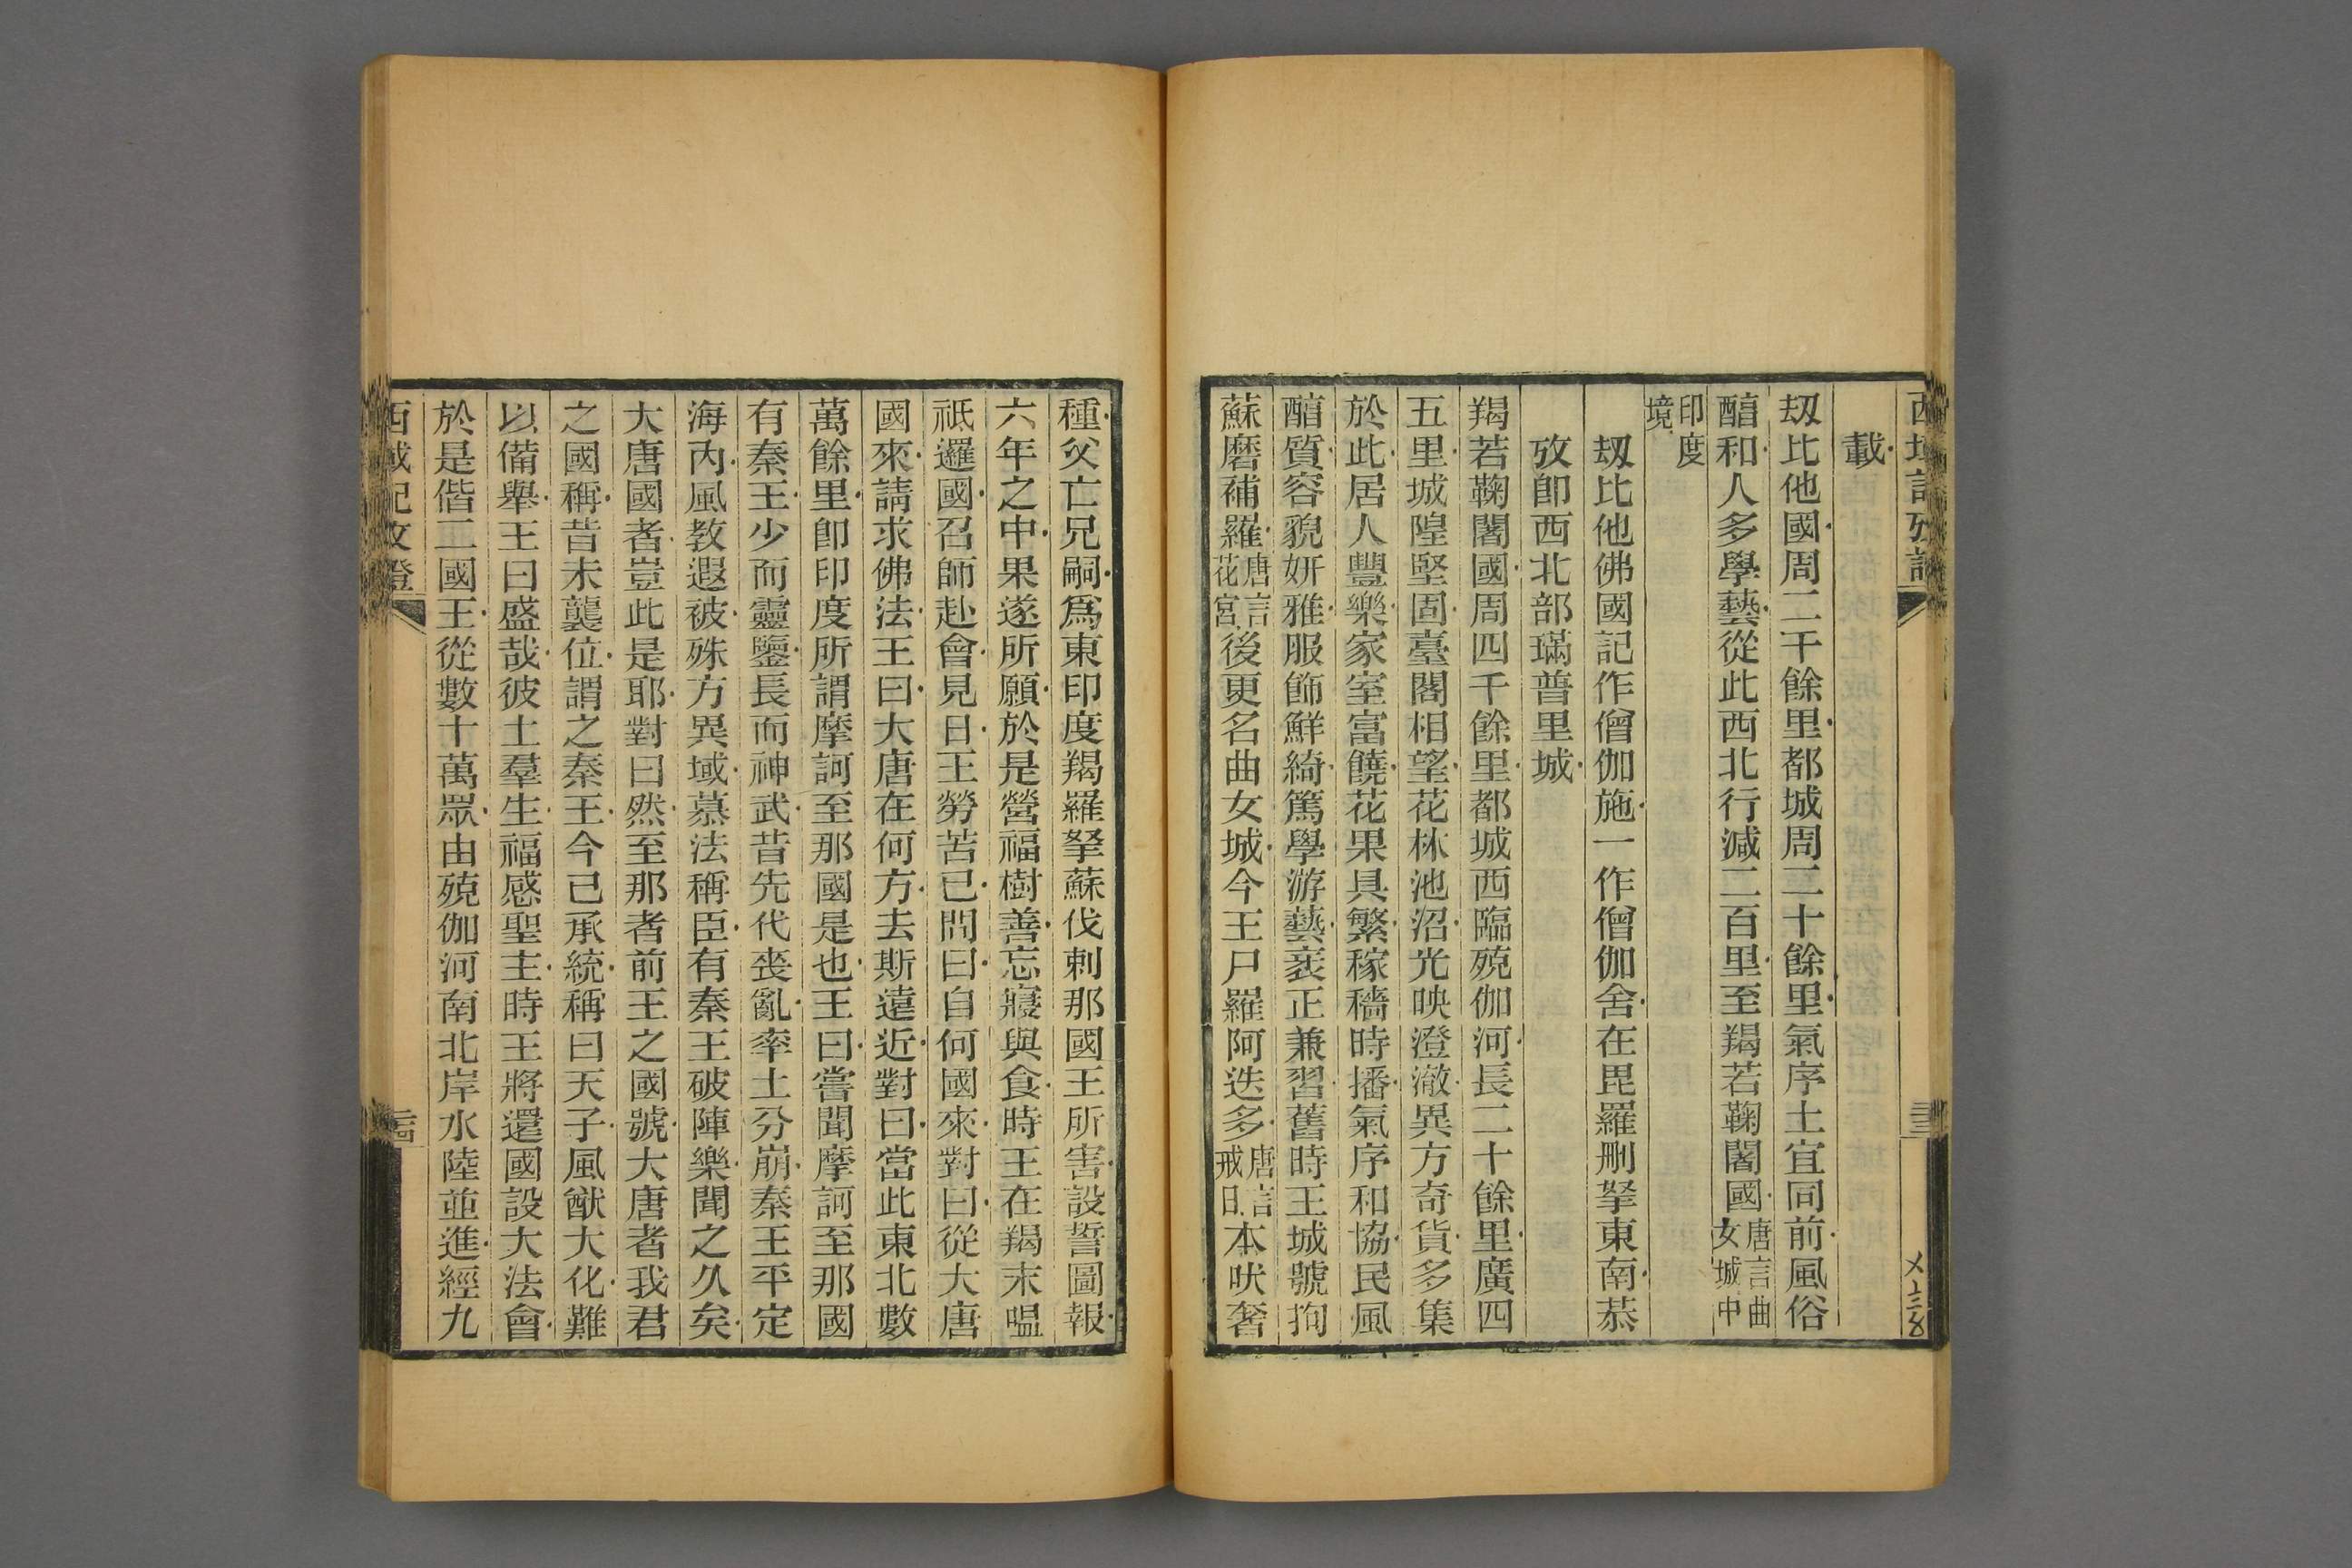 載
刼比他國周二千餘里都城周二十餘里氣序土宜同前風俗
醕和人多學藝從此西北行減二百里至羯若鞠闍國唐言曲女城中
印度境
刼比他佛國記作僧伽施一作僧伽舍在毘羅刪拏東南恭
攷卽西北部璊普里城
羯若鞠闍國周四千餘里都城西臨殑伽河長二十餘里廣四
五里城隍堅固臺閣相望花林池沼光映澄澈異方奇貨多集
於此居人豐樂家室富饒花果具繁稼穡時播氣序和協民風
醕質容貌妍雅服飾鮮綺篤學游藝衺正兼習舊時王城號拘
蘇磨補羅唐言花宮後更名曲女城今王尸羅阿迭多唐言戒日本吠奢
種父亡兄嗣爲東印度羯羅拏蘇伐剌那國王所害設誓圖報
六年之中果遂所願於是營福樹善忘寢與食時王在羯末嗢
祇邏國召師赴會見日王勞苦已問曰自何國來對曰從大唐
國來請求佛法王曰大唐在何方去斯遠近對曰當此東北數
萬餘里卽印度所謂摩訶至那國是也王曰嘗聞摩訶至那國
有秦王少而靈鑒長而神武昔先代喪亂率土分崩秦王平定
海內風教遐被殊方異域慕法稱臣有秦王破陣樂聞之久矣
大唐國者豈此是耶對曰然至那者前王之國號大唐者我君
之國稱昔未襲位謂之秦王今已承統稱曰天子風猷大化難
以備舉王曰盛哉彼土羣生福感聖主時王將還國設大法會
於是偕二國王從數十萬眾由殑伽河南北岸水陸並進經九
西域記攷證